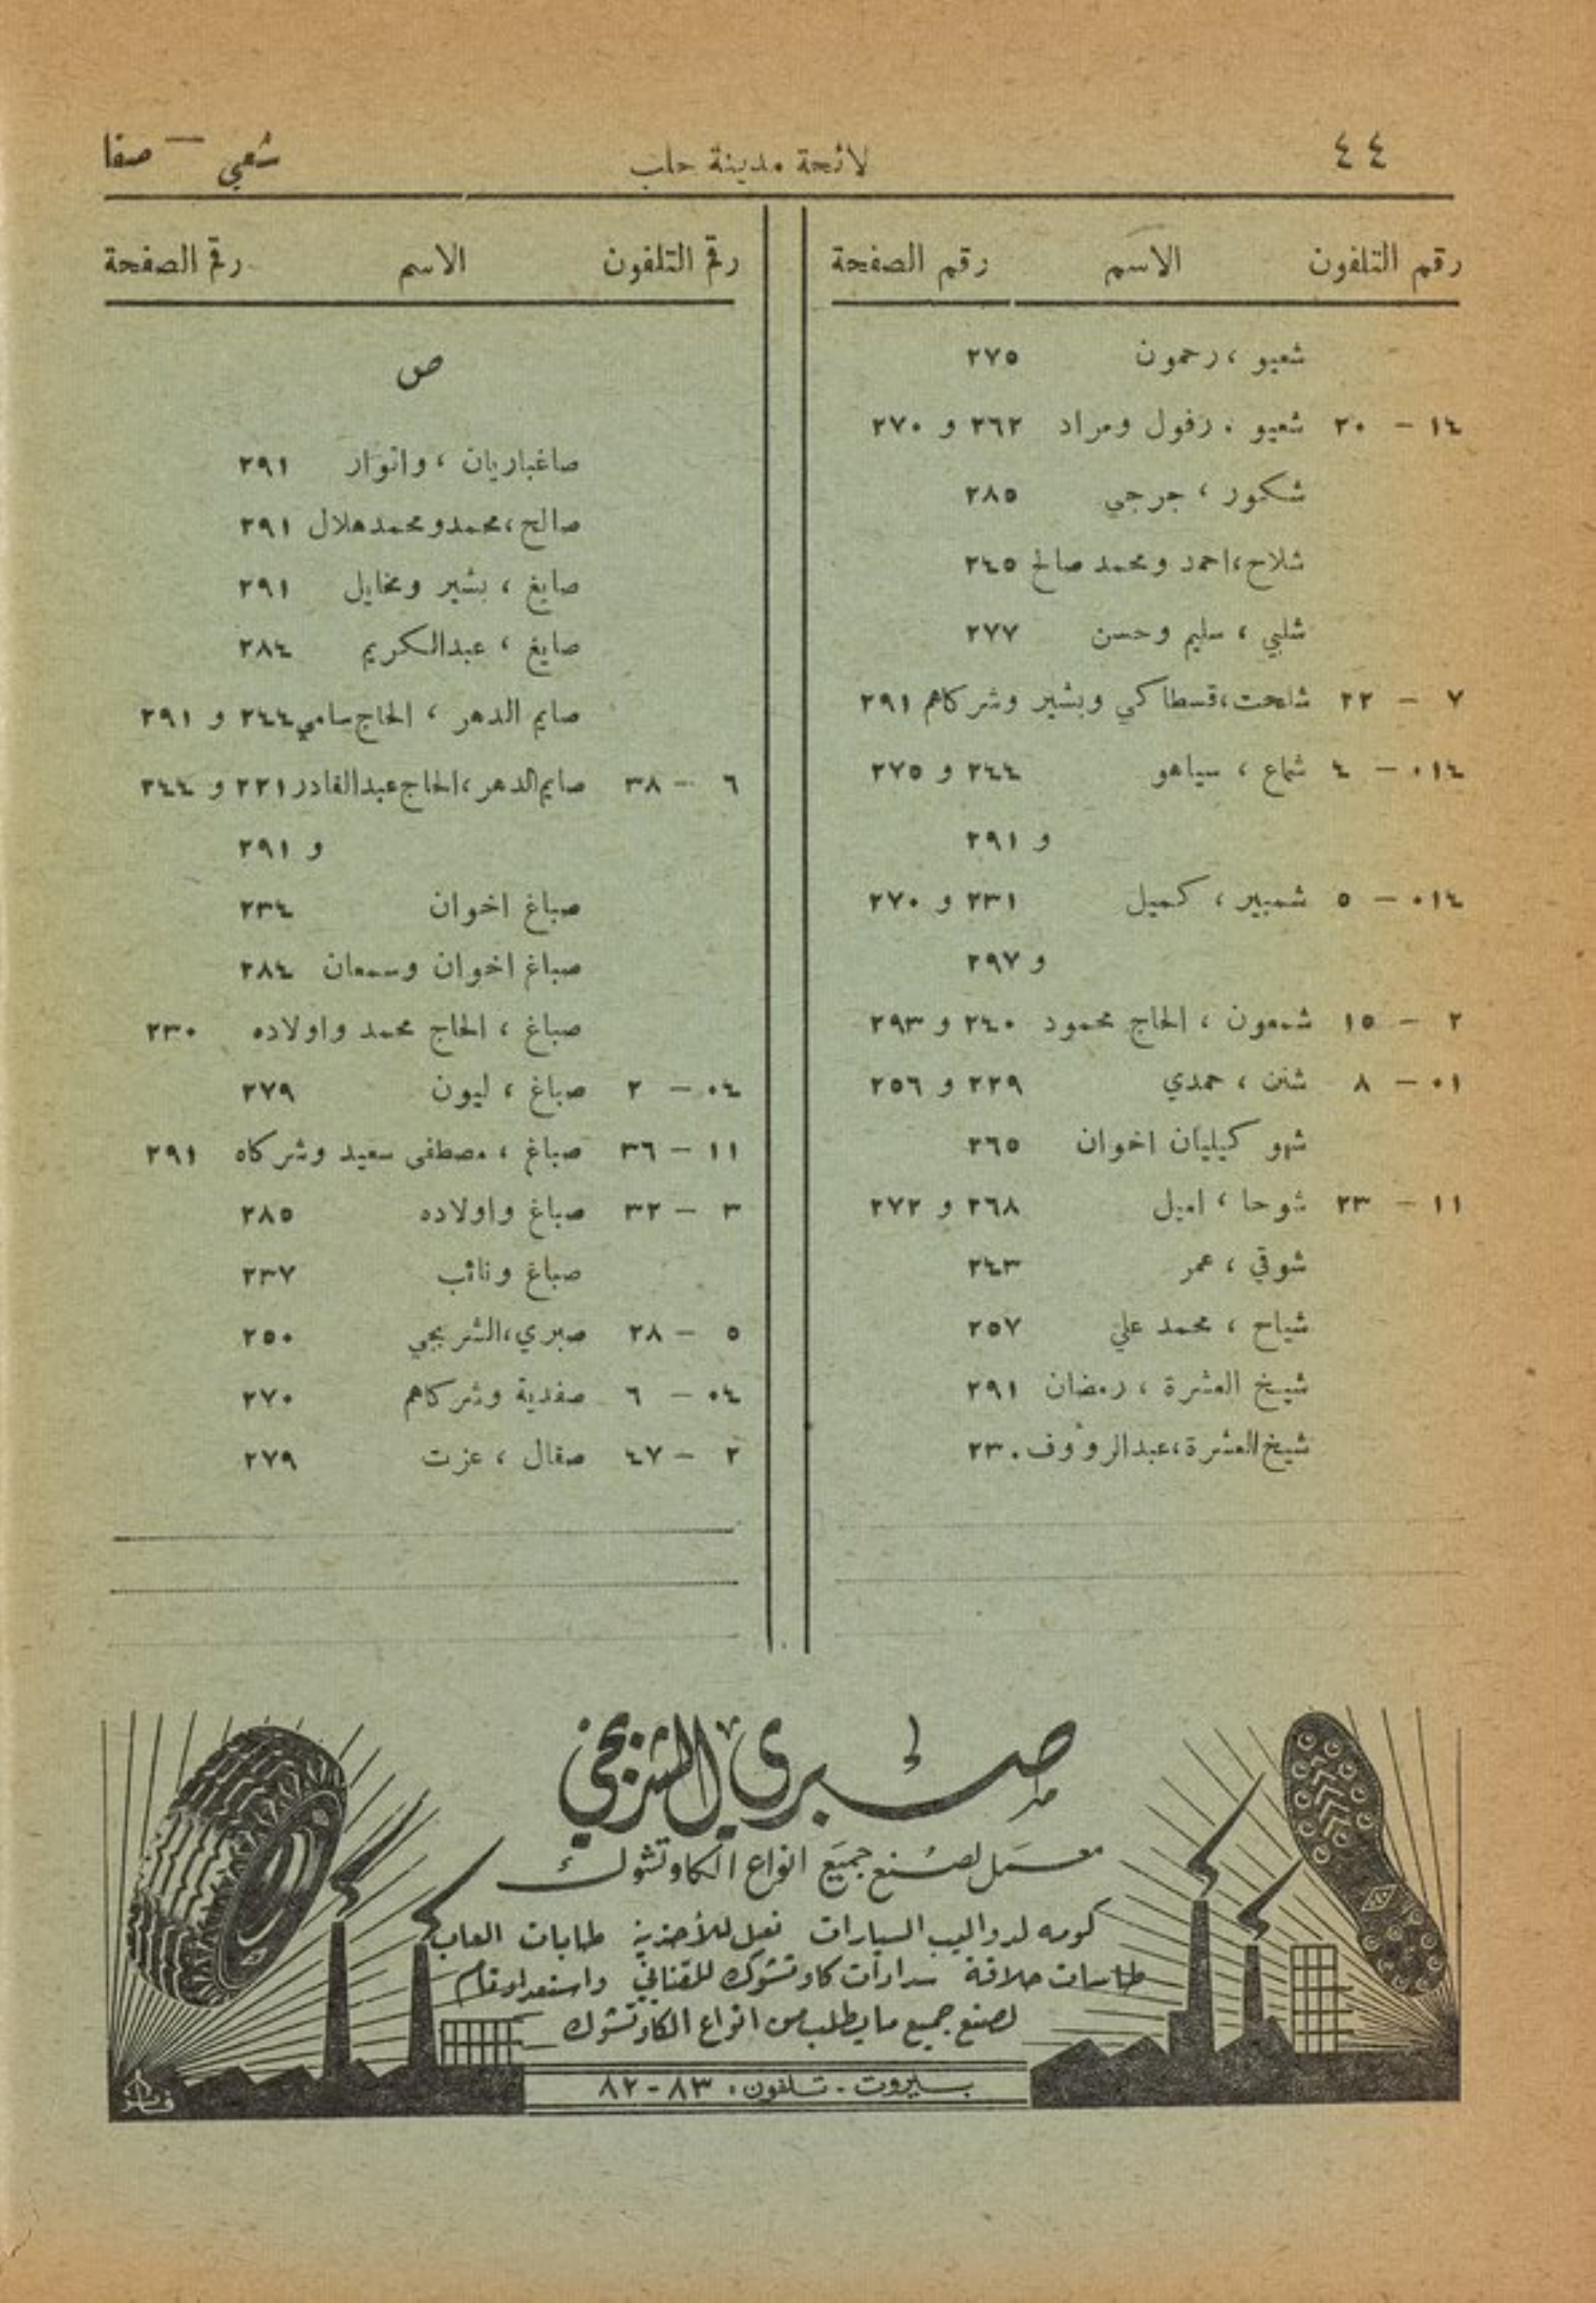 ٤٤
لائحة مدينة حلب
شعبي — صفا
رقم التلفون الاسم رقم الصفحة
شعيو ، رحمون ٢٧٥
١٤ — ٢٠ شعيو ، رفول ومراد ٢٦٢ و ٢٧٠
شكور ، جرجي ٢٨٥
شلاح ، احمد ومحمد صالح ٢٤٥
شلبي ، سليم وحسن ٢٧٧
٧ — ٢٢ شلحت ، قسطاكي وبشير وشركاهم ٢٩١
٠١٤ — ٤ شماع ، سياهو ٢٤٤ و ٢٧٥
و ٢٩١
٠١٤ — ٥ شمبير ، كميل ٢٣١ و ٢٧٠
و ٢٩٧
٢ — ١٥ شمعون ، الحاج محمود ٢٤٠ و ٢٩٣
٠١ — ٨ شنن ، حمدي ٢٢٩ و ٢٥٦
شهو كيليان اخوان ٢٦٥
١١ — ٢٣ شوحا ، اميل ٢٦٨ و ٢٧٢
شوقي ، عمر ٢٤٣
شياح ، محمد علي ٢٥٧
شيخ العشرة ، رمضان ٢٩١
شيخ العشرة ، عبد الرؤوف ٢٣٠
رقم التلفون الاسم رقم الصفحة
ص
صاغباريان ، وانوار ٢٩١
صالح ، محمد ومحمد هلال ٢٩١
صايغ ، بشير ومخايل ٢٩١
صايغ ، عبدالكريم ٢٨٤
صايم الدهر ، الحاج سامي ٢٤٤ و ٢٩١
٦ — ٣٨ صايم الدهر ، الحاج عبدالقادر ٢٢١ و ٢٤٤
و ٢٩١
صباغ اخوان ٢٣٤
صباغ اخوان وسمعان ٢٨٤
صباغ ، الحاج محمد واولاده ٢٣٠
٠٤ — ٢ صباغ ، ليون ٢٧٩
١١ — ٣٦ صباغ ، مصطفى سعيد وشركاه ٢٩١
٣ — ٣٢ صباغ واولاده ٢٨٥
صباغ ونائب ٢٣٧
٥ — ٢٨ صبري ، الشربجي ٢٥٠
٠٤ — ٦ صفدية وشركاهم ٢٧٠
٢ — ٤٧ صقال ، عزت ٢٧٩
صبري الشربجي
معمل لصنع جميع انواع الكاوتشوك
كومه لدواليب السيارات نعل للأحذية طابات العاب
طاسات حلاقة سدادات كاوتشوك للقناني واستعداد تام
لصنع جميع ما يطلب من انواع الكاوتشوك
بيروت - تلفون : ٨٣-٨٢